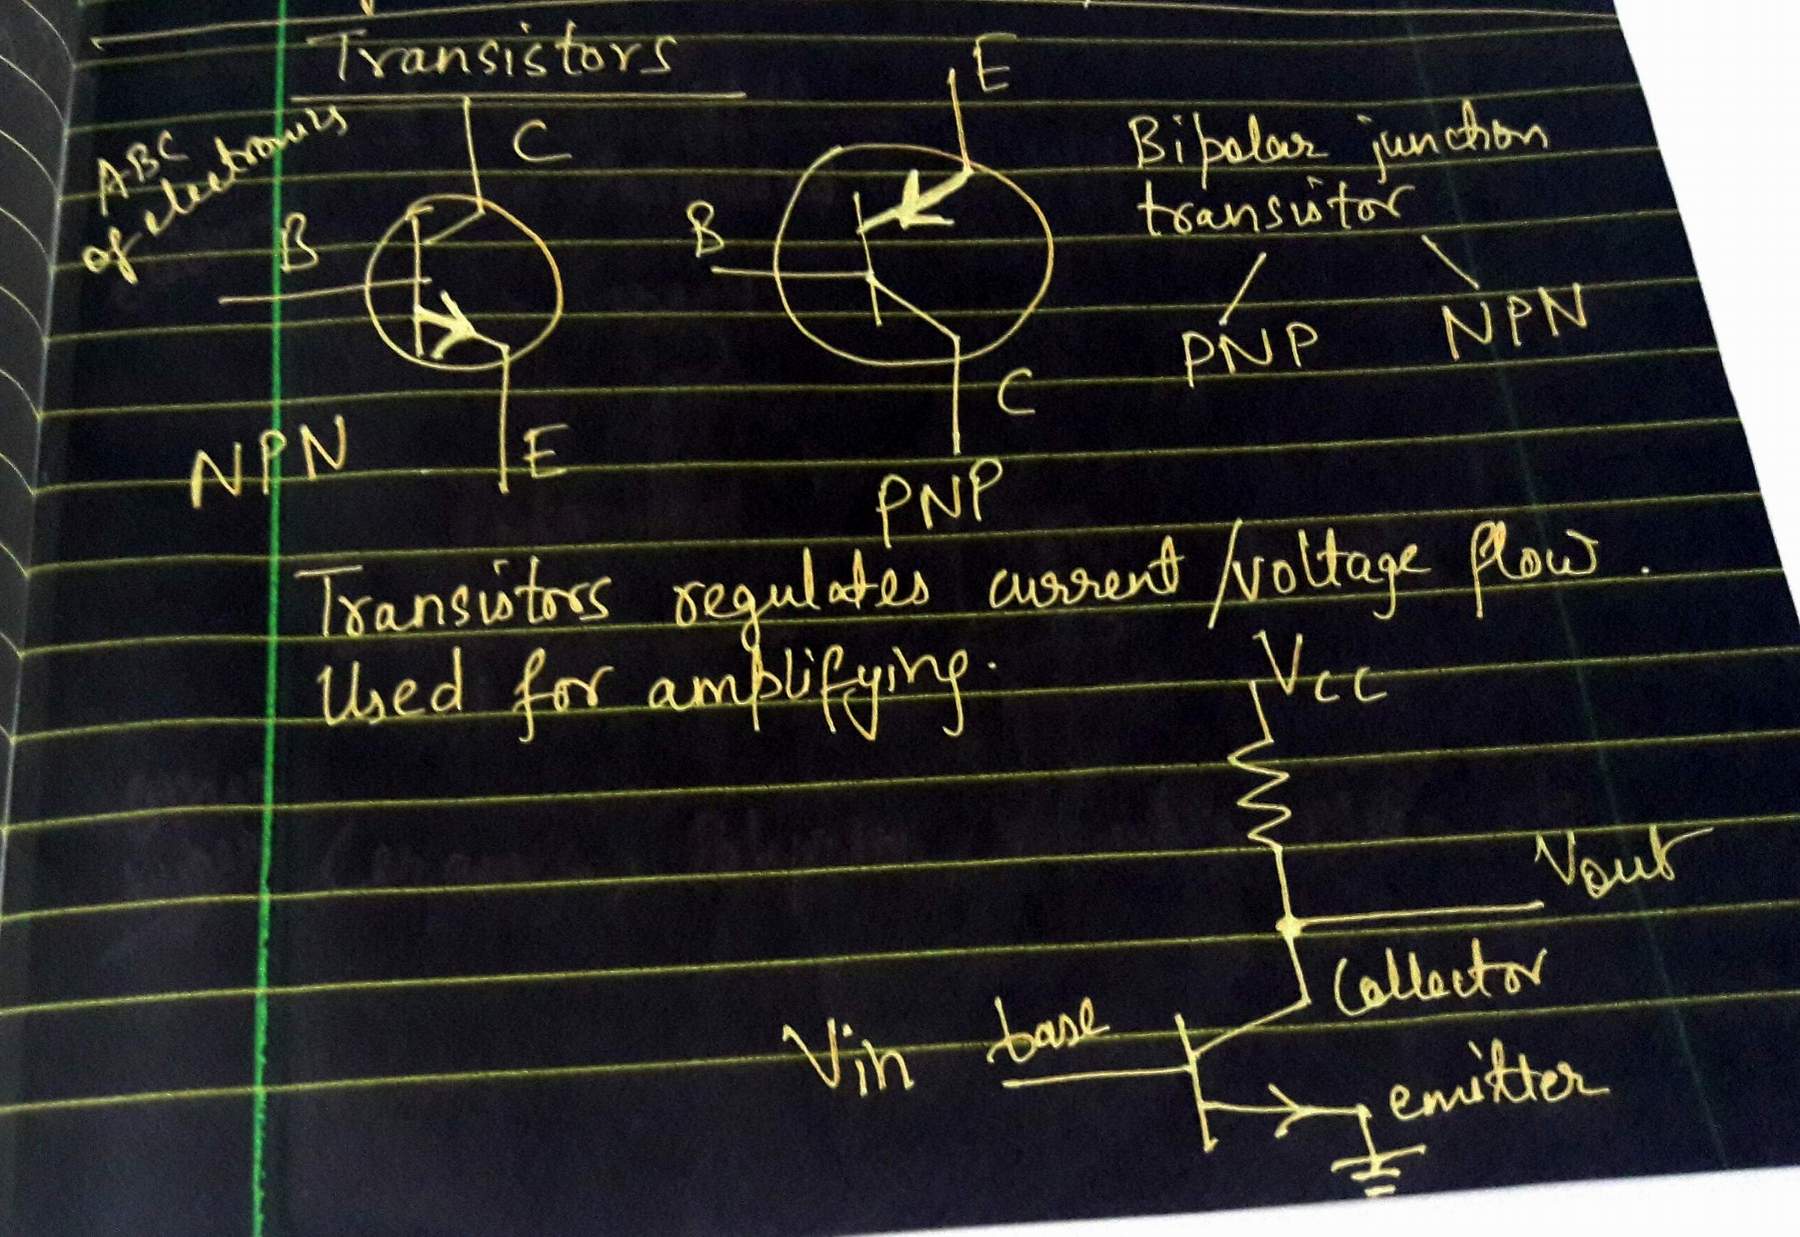 Transistors
ABC
of electronics
C
B
E
NPN
E
B
C
PNP
Bipolar junction
transistor
PNP NPN
Transistors regulates current/voltage flow.
Used for amplifying.
Vcc
Vout
Collector
Vin base
emitter